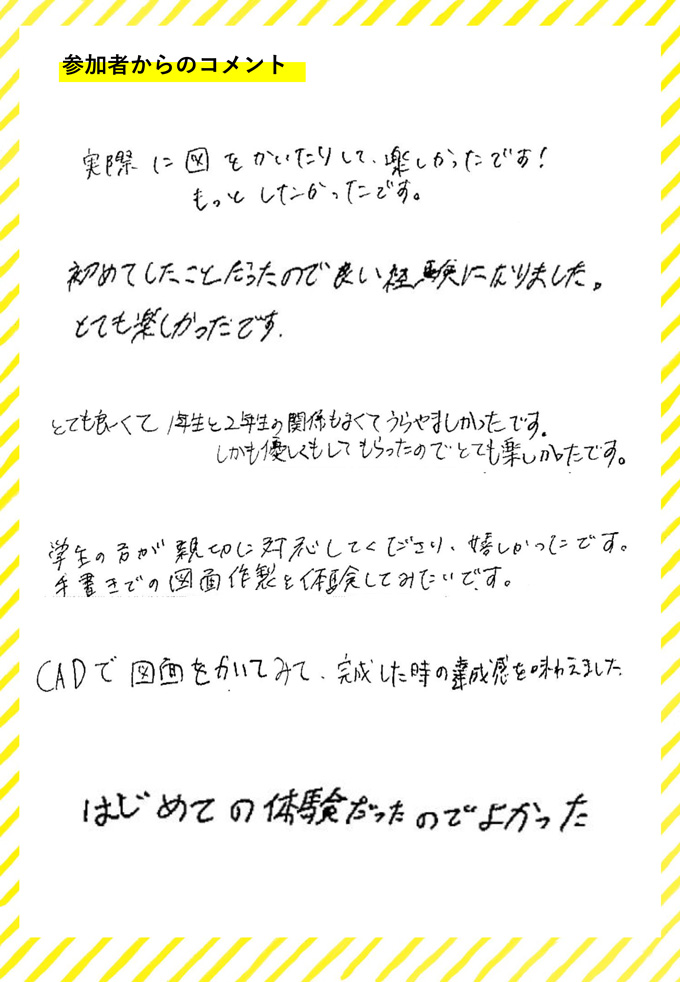 参加者からのコメント
実際に図をかいたりして、楽しかったです!
もっとしたかったです。
初めてしたことだったので良い経験になりました。
とても楽しかったです.
とても良くて1年生と2年生の関係もよくてうらやましかったです.
しかも優しくもしてもらったのでとても楽しかったです。
学生の方が親切に対応してくださり、嬉しかったです。
手書きでの図面作製を体験してみたいです。
CADで図面をかいてみて、完成した時の達成感を味わえました
はじめての体験だったのでよかった